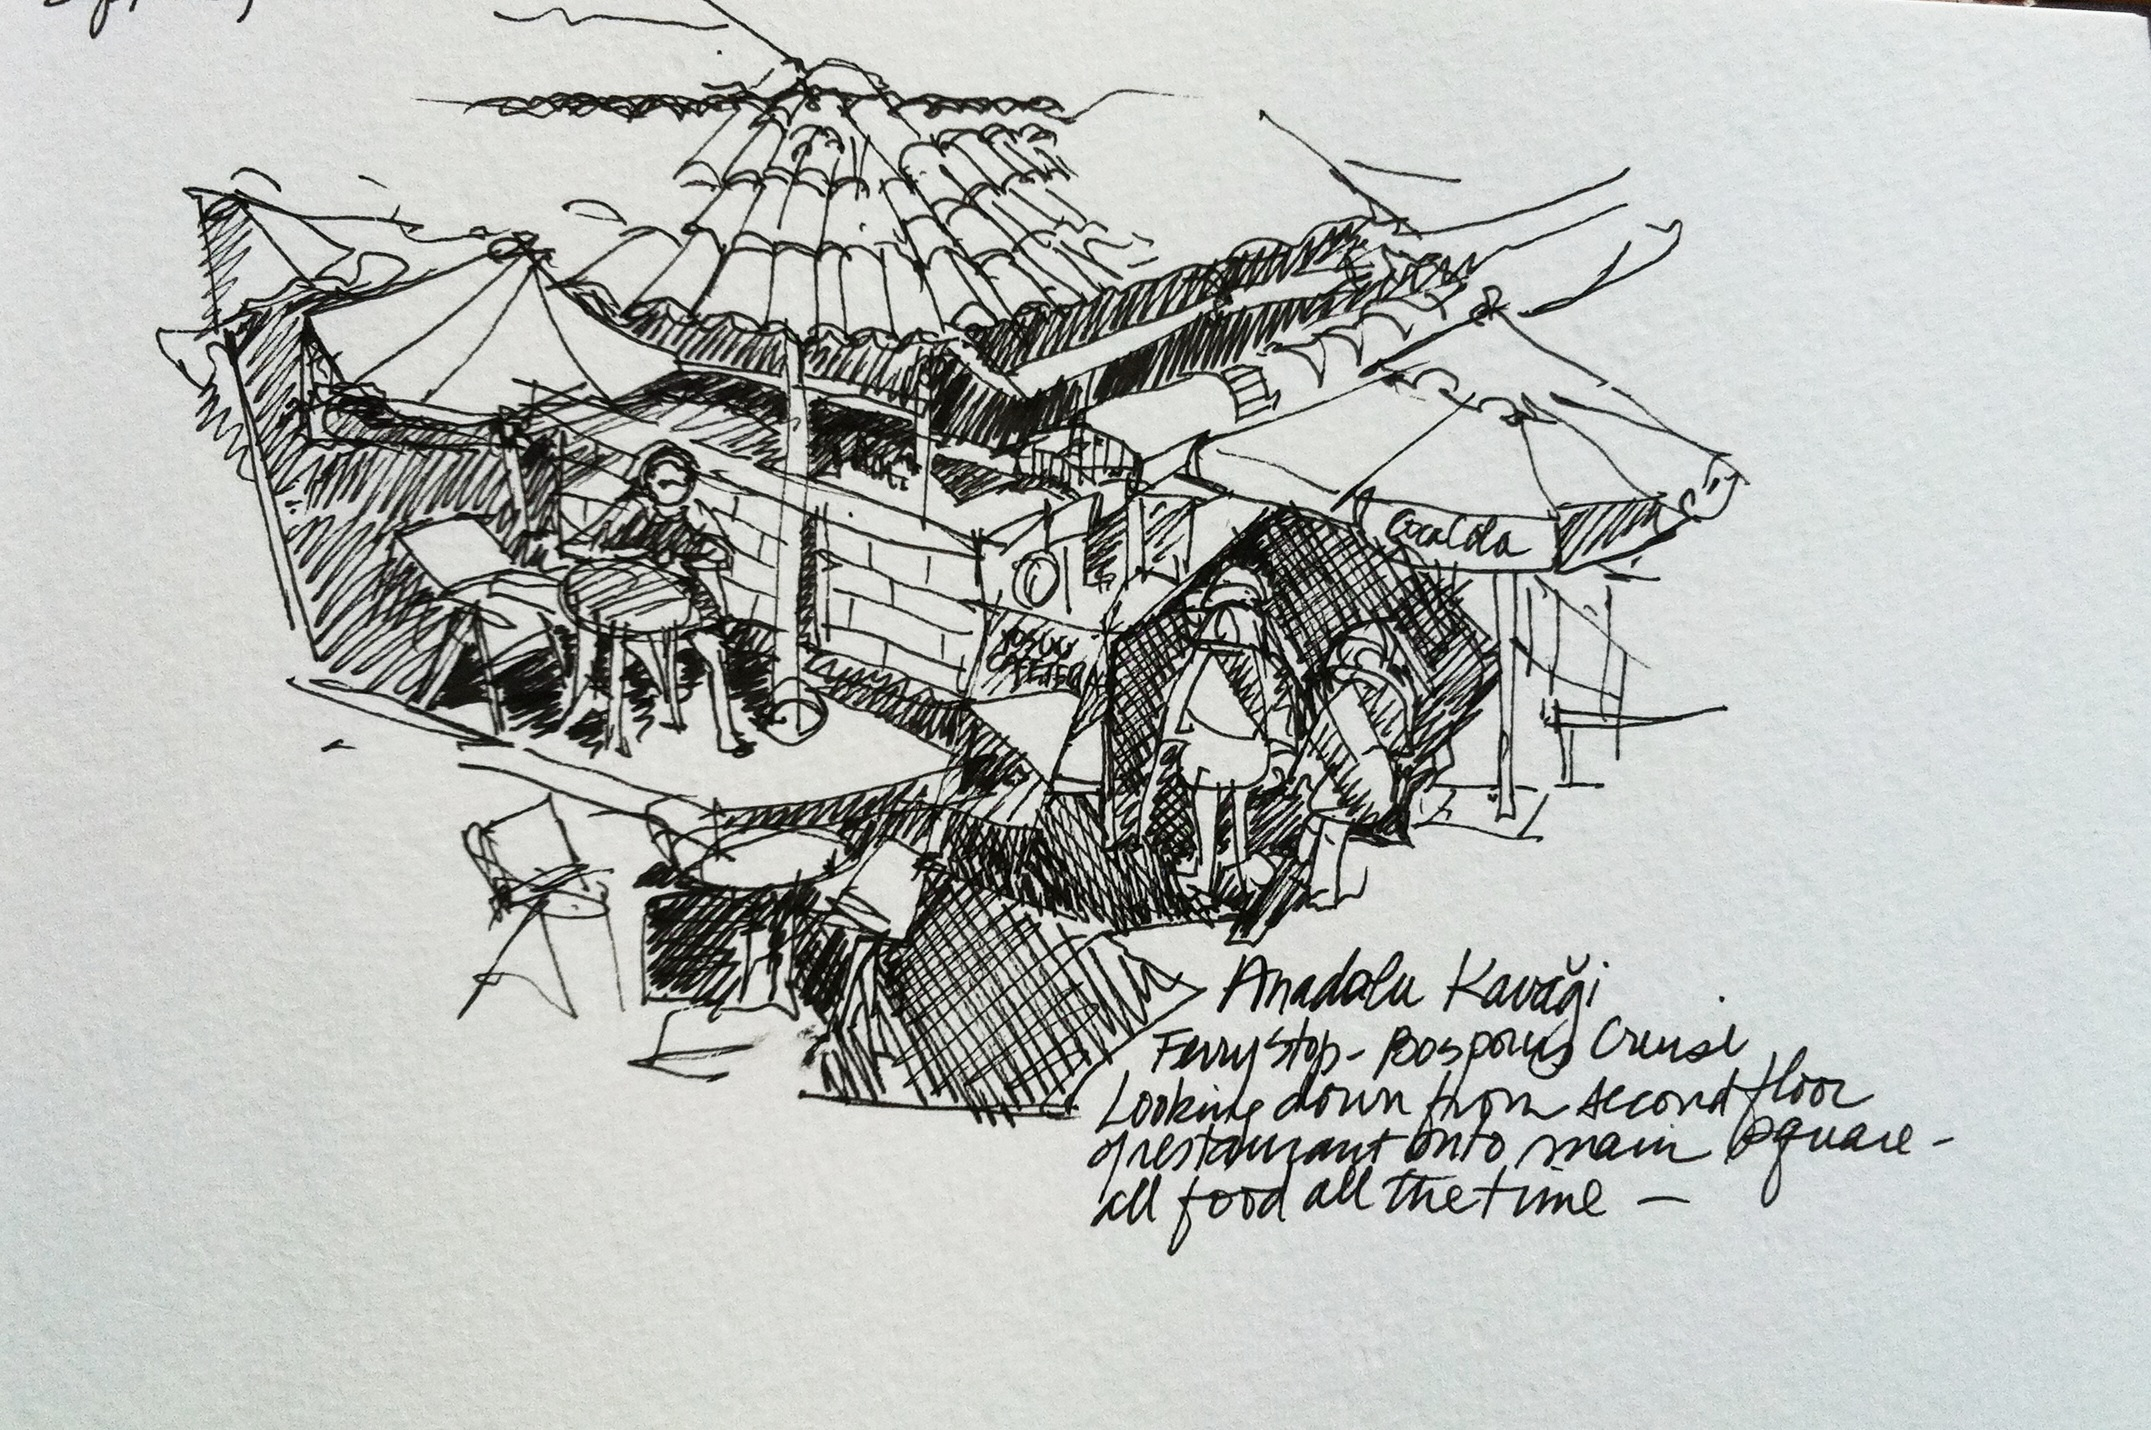 CocaCola
Anadolu Kavaği
Ferry Stop - Bosporus Cruise
Looking down from second floor
of restaurant onto main square -
all food all the time —